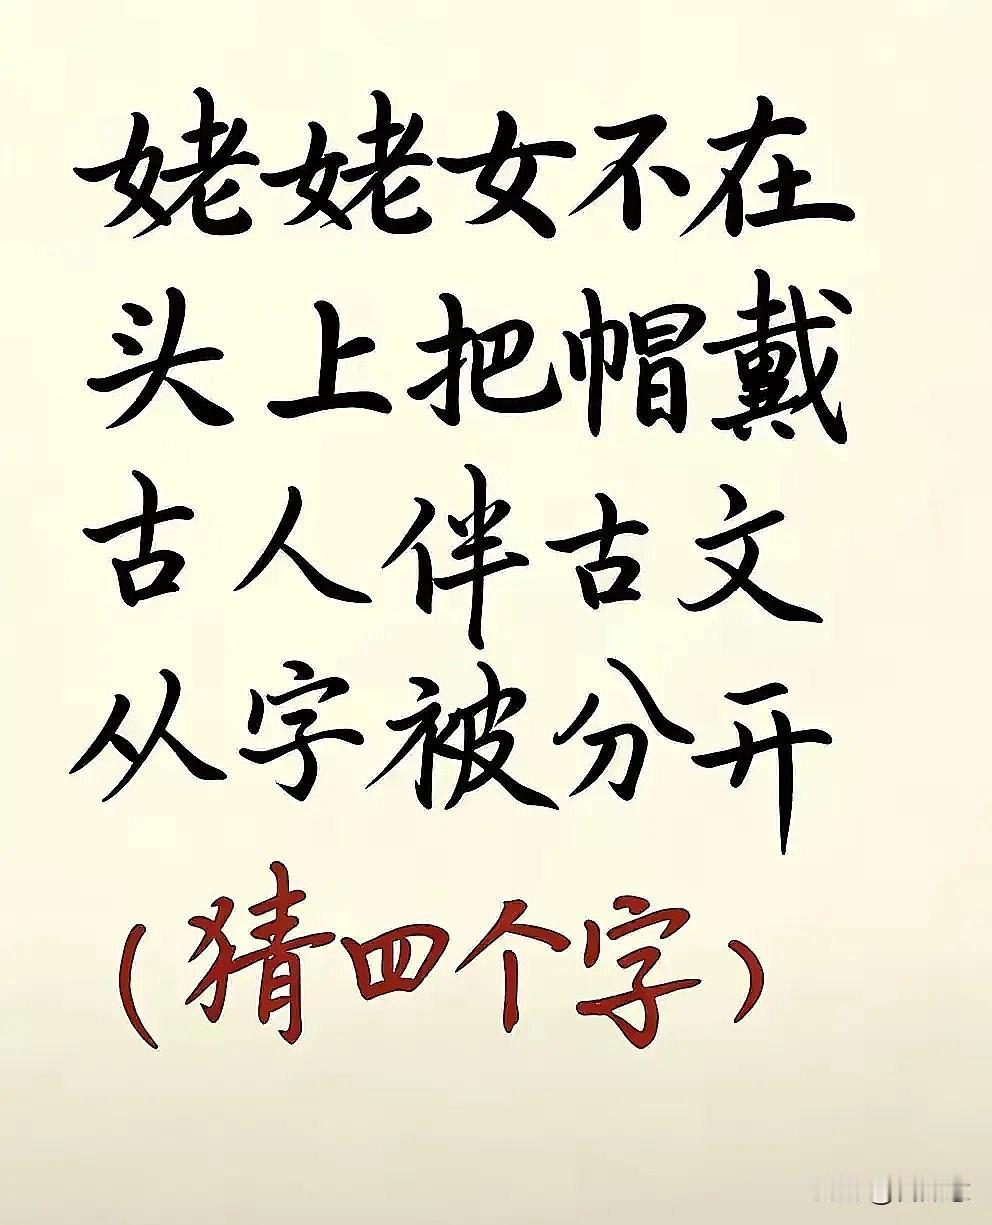 姥姥女不在
头上把帽戴
古人伴古文
从字被分开
（猜四个字）